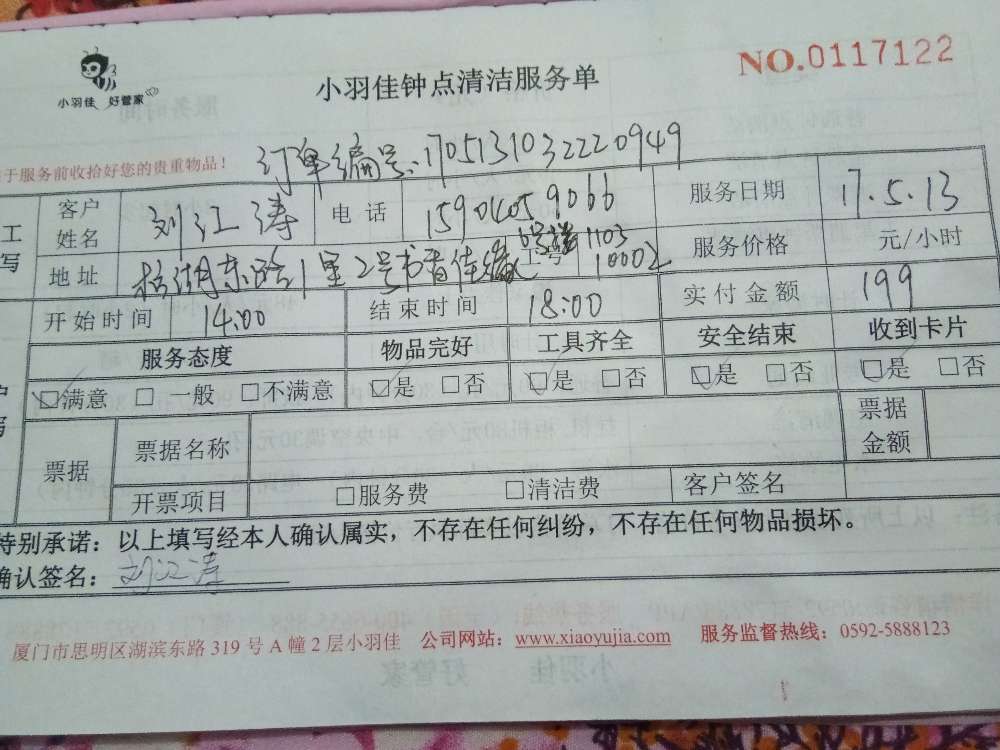 小羽佳 好管家
小羽佳钟点清洁服务单
NO.0117122
于服务前收拾好您的贵重物品！
订单编号:1705131032220949
工 客户姓名 刘江涛 电话 15901059066 服务日期 17.5.13
写 地址 湖东路1里2号书香佳缘 6号楼1103 工号 10002 服务价格 元/小时
开始时间 14:00 结束时间 18:00 实付金额 199
服务态度 物品完好 工具齐全 安全结束 收到卡片
☑满意 □一般 □不满意 ☑是 □否 ☑是 □否 ☑是 □否 ☑是 □否
票据 票据名称 票据金额
开票项目 □服务费 □清洁费 客户签名
特别承诺：以上填写经本人确认属实，不存在任何纠纷，不存在任何物品损坏。
确认签名：刘江涛
厦门市思明区湖滨东路 319 号 A 幢 2 层小羽佳 公司网站：www.xiaoyujia.com 服务监督热线：0592-5888123
小羽佳 好管家